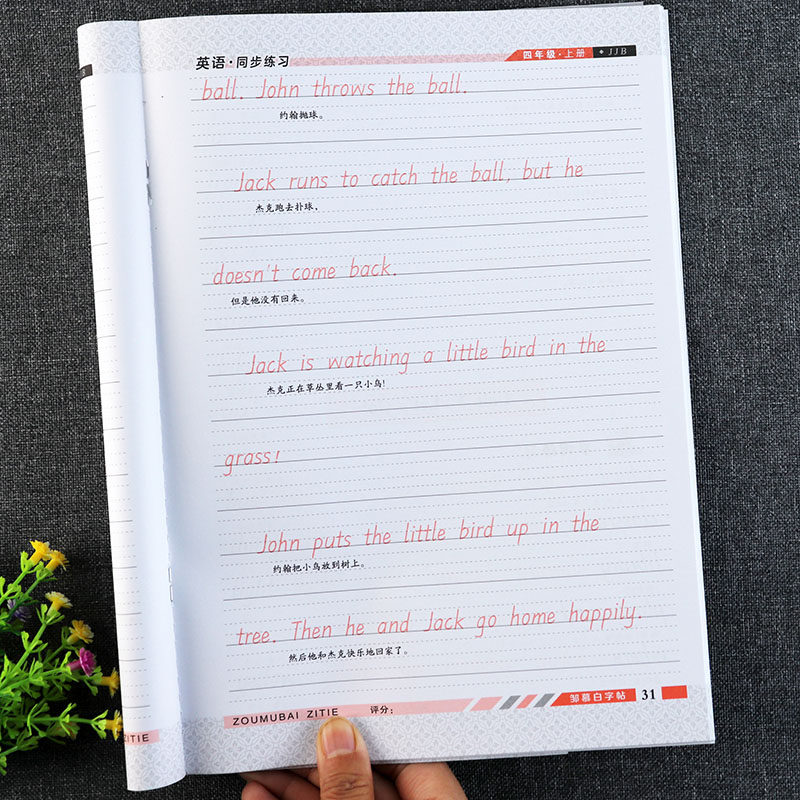 英语·同步练习 四年级·上册 ◆ JJB
ball. John throws the ball.
约翰抛球。
Jack runs to catch the ball, but he
杰克跑去扑球,
doesn't come back.
但是他没有回来。
Jack is watching a little bird in the
杰克正在草丛里看一只小鸟!
grass!
John puts the little bird up in the
约翰把小鸟放到树上。
tree. Then he and Jack go home happily.
然后他和杰克快乐地回家了。
ZOUMUBAI ZITIE 评分: 邹慕白字帖 31
ITIE